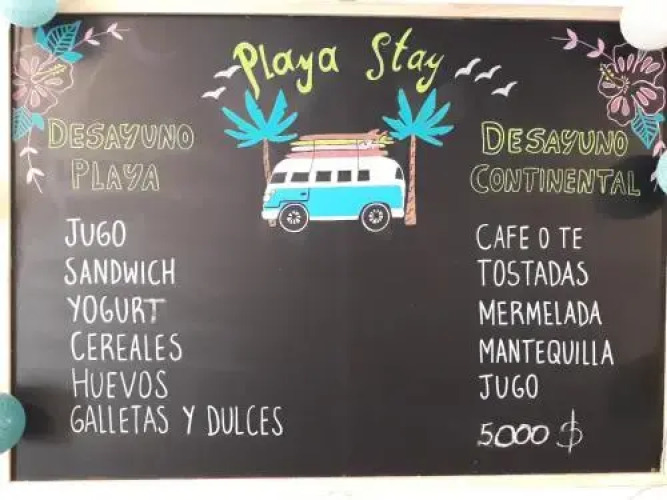 Playa Stay
DESAYUNO
PLAYA
JUGO
SANDWICH
YOGURT
CEREALES
HUEVOS
GALLETAS Y DULCES
DESAYUNO
CONTINENTAL
CAFE O TE
TOSTADAS
MERMELADA
MANTEQUILLA
JUGO
5000 $